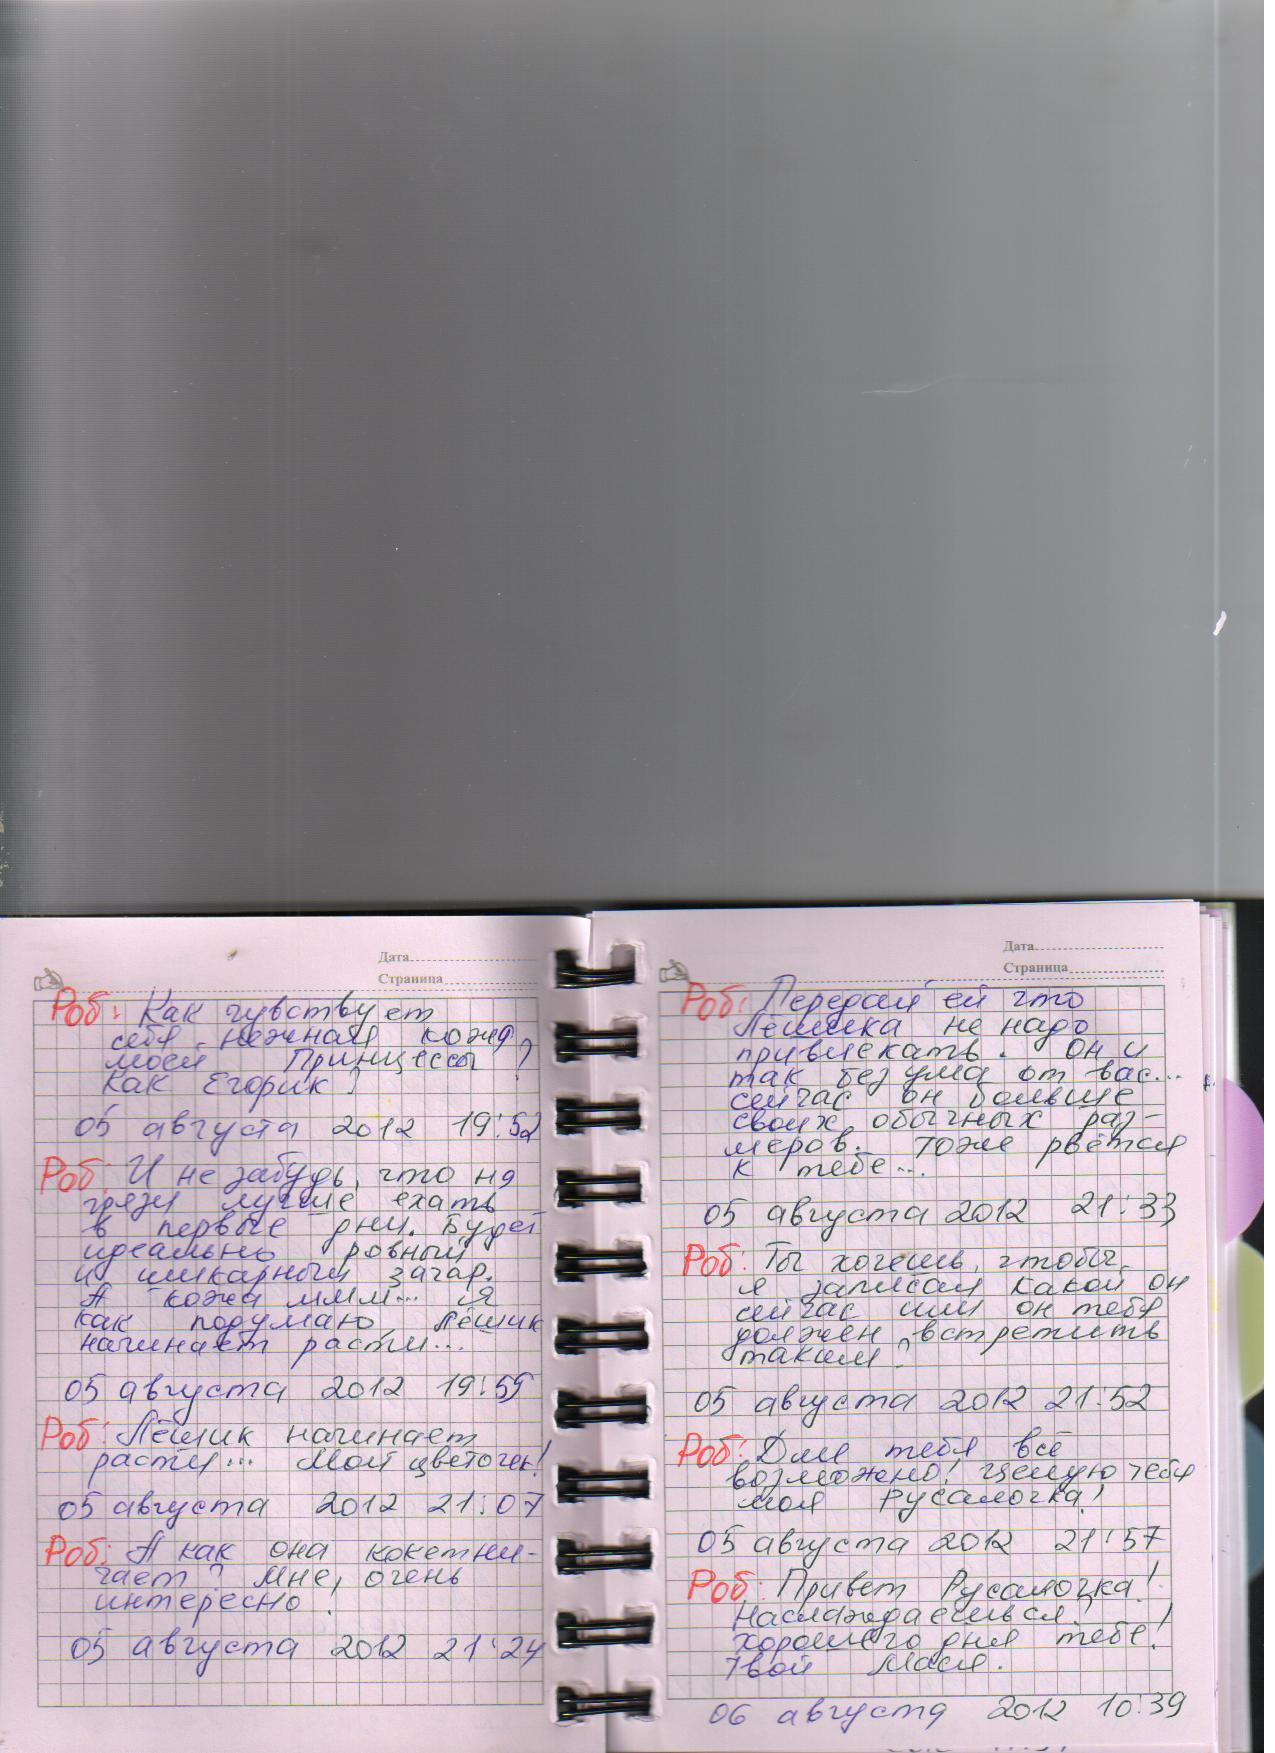 Дата
Страница
Роб: Как чувствует
себя нежная кожа
моей Принцессы ?
Как Егорик ?
05 августа 2012 19:52
Роб: И не забудь, что на
грязи лучше ехать
в первые дни. Будет
идеально ровный
и шикарный загар.
А кожа ммм... Я
как подумаю Лёшик
начинает расти...
05 августа 2012 19:55
Роб: Лёшик начинает
расти... Мой цветочек!
05 августа 2012 21:07
Роб: А как она кокетни-
чает ? Мне, очень
интересно !
05 августа 2012 21:24
Дата
Страница
Роб: Передай ей что
Лёшика не надо
привлекать. Он и
так без ума от вас...
сейчас он больше
своих обычных раз-
меров. Тоже рвётся
к тебе...
05 августа 2012 21:33
Роб: Ты хочешь, чтобы
я записал какой он
сейчас или он тебя
должен встретить
таким ?
05 августа 2012 21:52
Роб: Для тебя всё
возможно! Целую тебя
моя Русалочка!
05 августа 2012 21:57
Роб: Привет Русалочка!
Наслаждаешься ?
хорошего дня тебе!
Твой Мася.
06 августа 2012 10:39